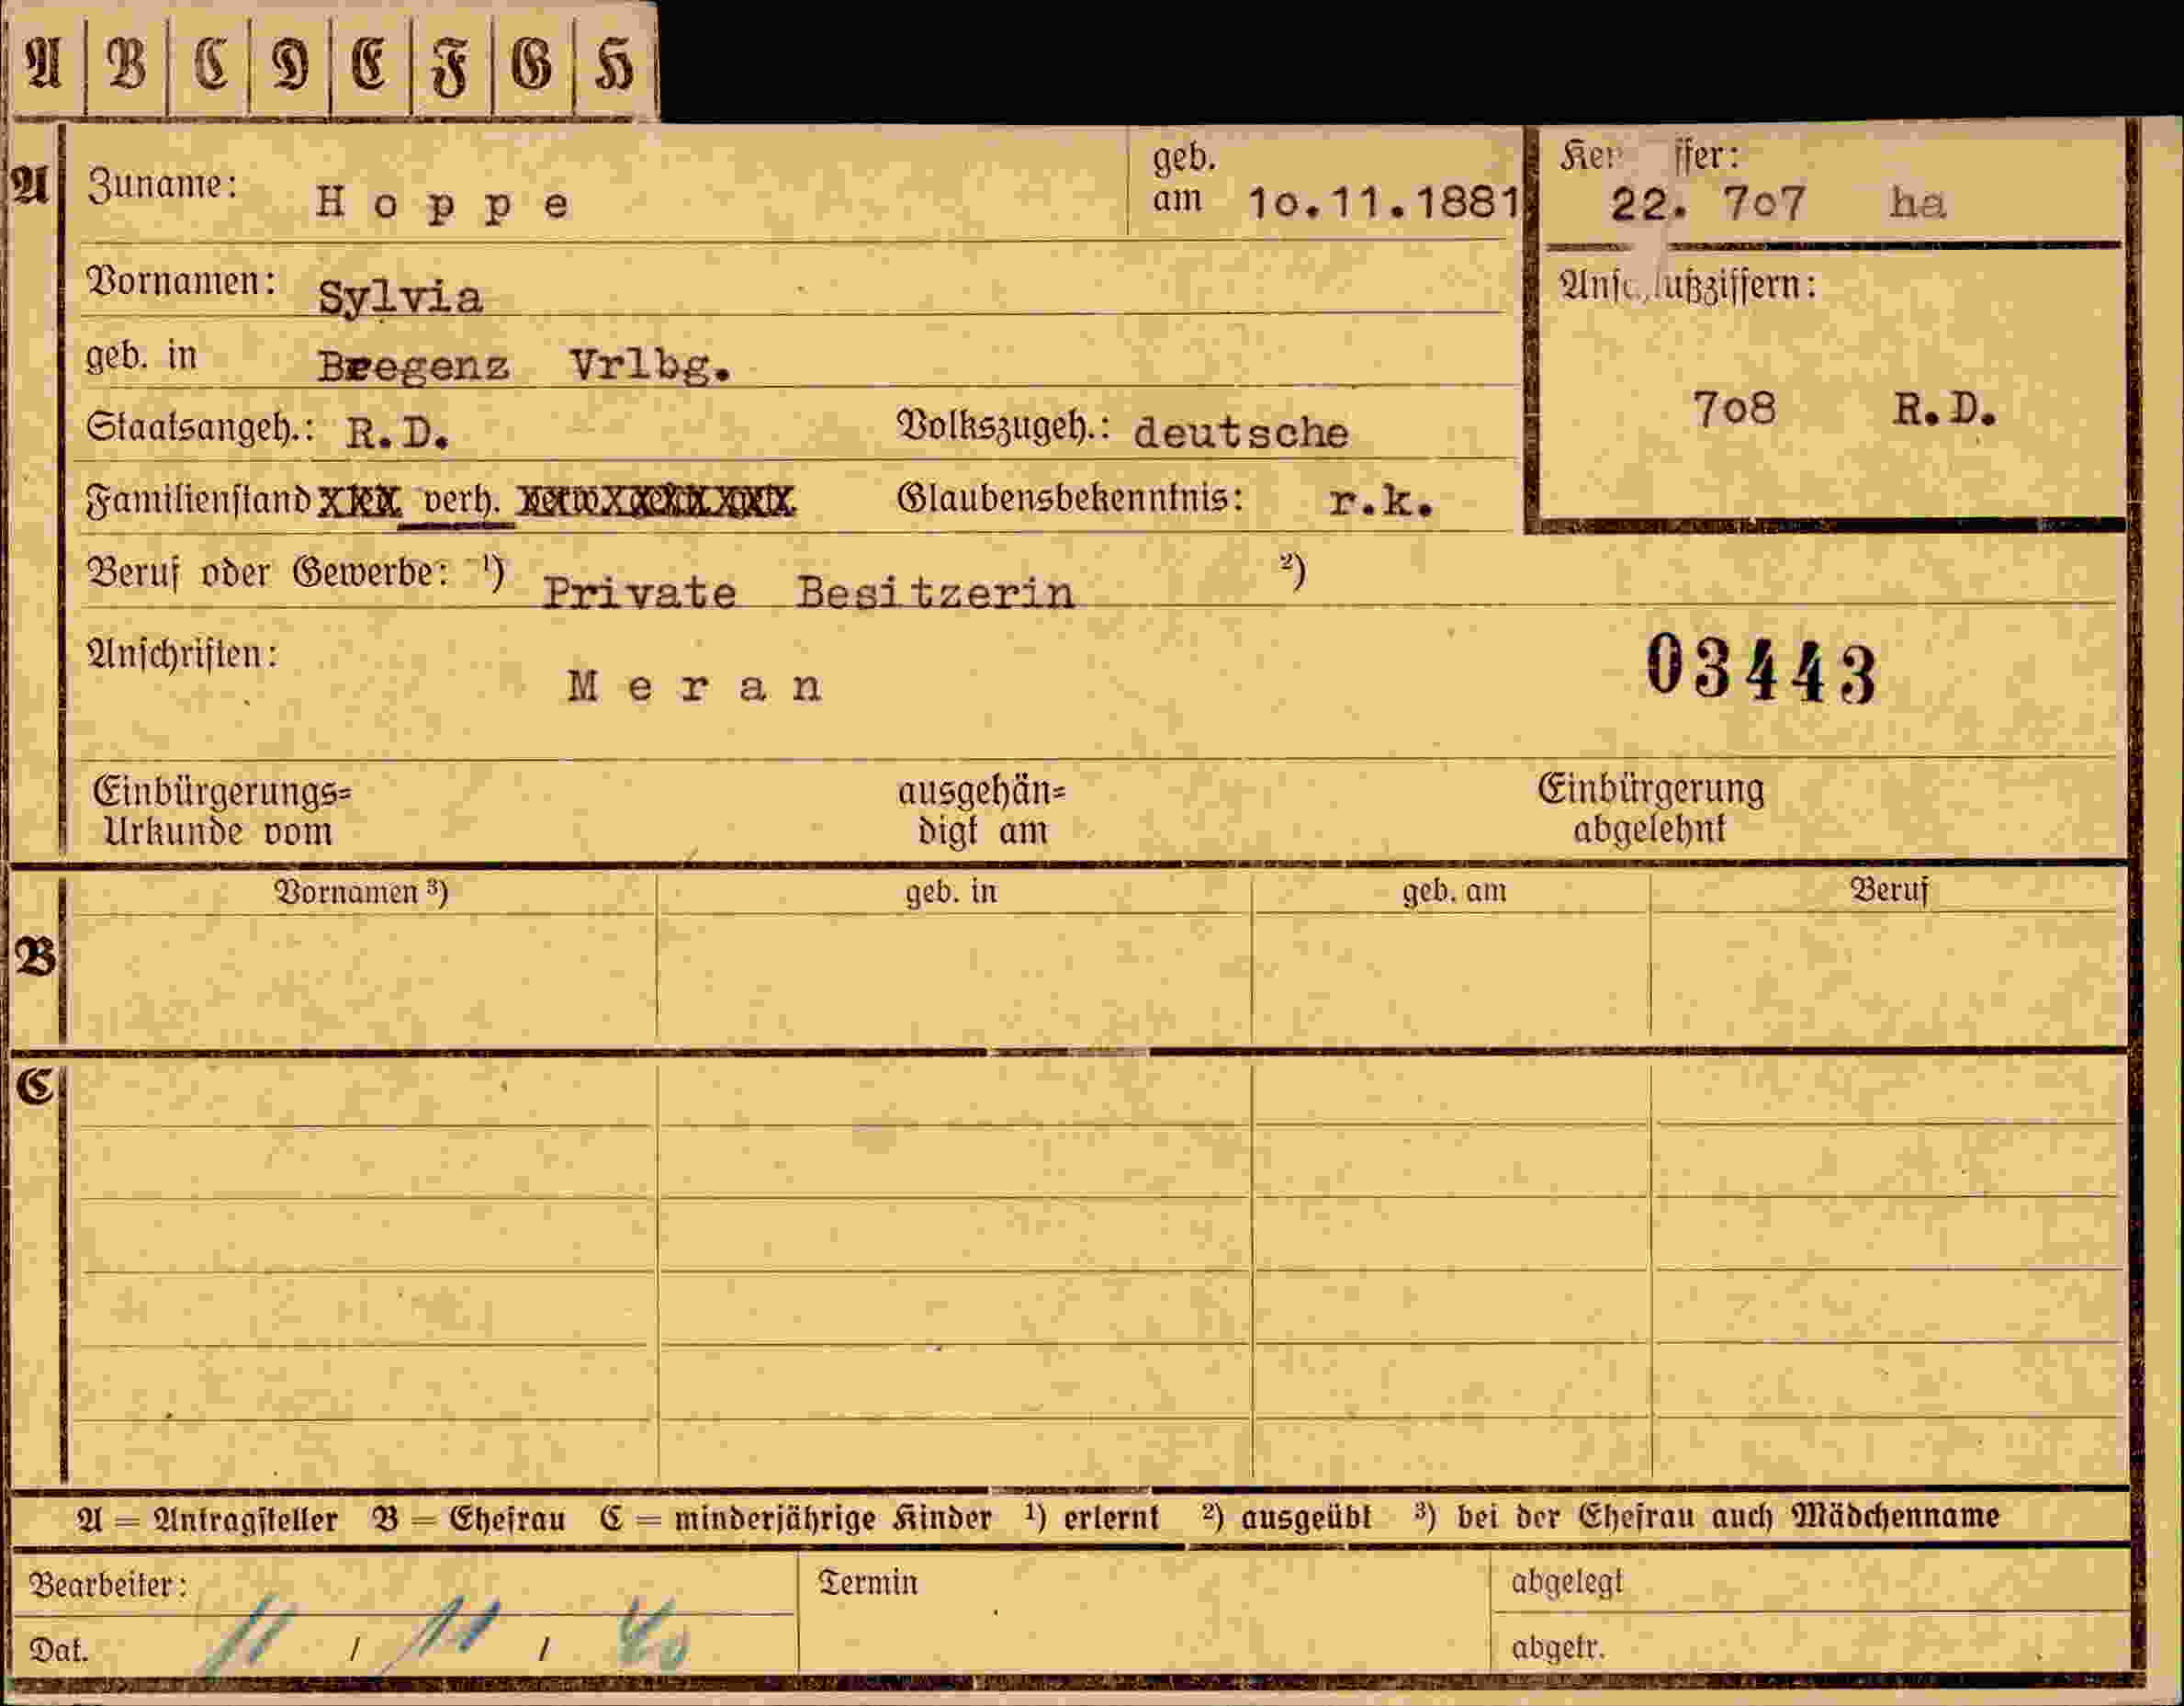 A B C D E F G H
A Zuname: Hoppe geb. am 10.11.1881
Ken ffer: 22. 707 ha
Vornamen: Sylvia
Ansc lußziffern:
geb. in Bregenz Vrlbg.
708 R.D.
Staatsangeh.: R.D. Volkszugeh.: deutsche
Familienstand verh. Glaubensbekenntnis: r.k.
Beruf oder Gewerbe: ¹) Private Besitzerin ²)
Anschriften: Meran
03443
Einbürgerungs= ausgehän= Einbürgerung
Urkunde vom digt am abgelehnt
Vornamen ³) geb. in geb. am Beruf
B
C
A = Antragsteller B = Ehefrau C = minderjährige Kinder ¹) erlernt ²) ausgeübt ³) bei der Ehefrau auch Mädchenname
Bearbeiter: Termin abgelegt
Dat. 11 / 11 / 40 abgetr.